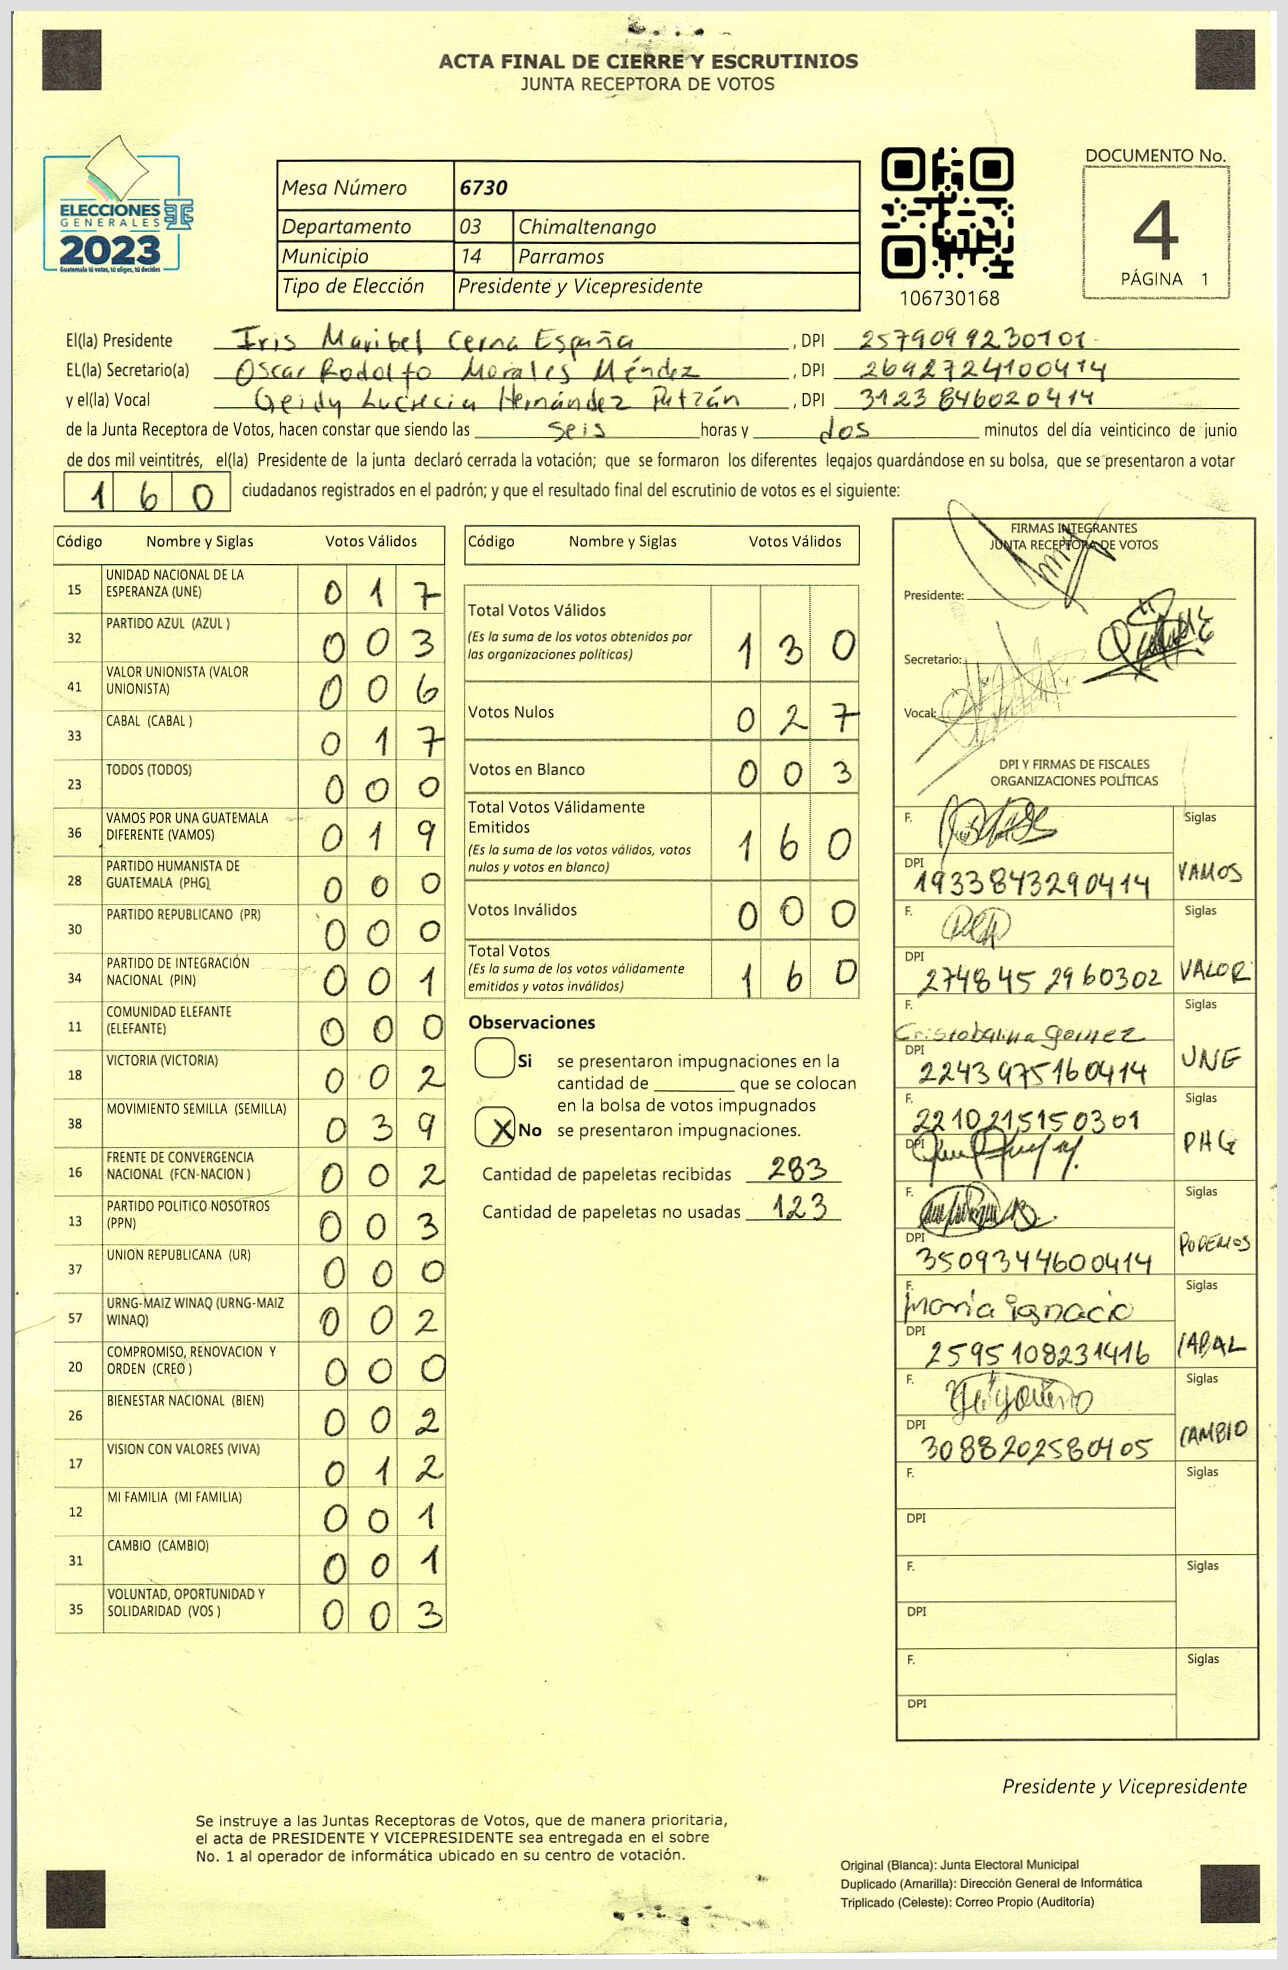 ACTA FINAL DE CIERRE Y ESCRUTINIOS
JUNTA RECEPTORA DE VOTOS
ELECCIONES
GENERALES
2023
Guatemala tú votas, tú eliges, tú decides
Mesa Número 6730
Departamento 03 Chimaltenango
Municipio 14 Parramos
Tipo de Elección Presidente y Vicepresidente
106730168
DOCUMENTO No.
4
PÁGINA 1
El(la) Presidente Iris Maribel Cerna España , DPI 2579099230101
EL(la) Secretario(a) Oscar Rodolfo Morales Méndez , DPI 2692724100414
y el(la) Vocal Geidy Lucrecia Hernández Putzán , DPI 3123846020414
de la Junta Receptora de Votos, hacen constar que siendo las seis horas y dos minutos del día veinticinco de junio
de dos mil veintitrés, el(la) Presidente de la junta declaró cerrada la votación; que se formaron los diferentes legajos guardándose en su bolsa, que se presentaron a votar
160 ciudadanos registrados en el padrón; y que el resultado final del escrutinio de votos es el siguiente:
Código Nombre y Siglas Votos Válidos
15 UNIDAD NACIONAL DE LA ESPERANZA (UNE) 017
32 PARTIDO AZUL (AZUL ) 003
41 VALOR UNIONISTA (VALOR UNIONISTA) 006
33 CABAL (CABAL ) 017
23 TODOS (TODOS) 000
36 VAMOS POR UNA GUATEMALA DIFERENTE (VAMOS) 019
28 PARTIDO HUMANISTA DE GUATEMALA (PHG) 000
30 PARTIDO REPUBLICANO (PR) 000
34 PARTIDO DE INTEGRACIÓN NACIONAL (PIN) 001
11 COMUNIDAD ELEFANTE (ELEFANTE) 000
18 VICTORIA (VICTORIA) 002
38 MOVIMIENTO SEMILLA (SEMILLA) 039
16 FRENTE DE CONVERGENCIA NACIONAL (FCN-NACION ) 002
13 PARTIDO POLITICO NOSOTROS (PPN) 003
37 UNION REPUBLICANA (UR) 000
57 URNG-MAIZ WINAQ (URNG-MAIZ WINAQ) 002
20 COMPROMISO, RENOVACION Y ORDEN (CREO ) 000
26 BIENESTAR NACIONAL (BIEN) 002
17 VISION CON VALORES (VIVA) 012
12 MI FAMILIA (MI FAMILIA) 001
31 CAMBIO (CAMBIO) 001
35 VOLUNTAD, OPORTUNIDAD Y SOLIDARIDAD (VOS ) 003
Código Nombre y Siglas Votos Válidos
Total Votos Válidos 130
(Es la suma de los votos obtenidos por
las organizaciones políticas)
Votos Nulos 027
Votos en Blanco 003
Total Votos Válidamente
Emitidos 160
(Es la suma de los votos válidos, votos
nulos y votos en blanco)
Votos Inválidos 000
Total Votos 160
(Es la suma de los votos válidamente
emitidos y votos inválidos)
Observaciones
Si se presentaron impugnaciones en la
cantidad de ________ que se colocan
en la bolsa de votos impugnados
X No se presentaron impugnaciones.
Cantidad de papeletas recibidas 283
Cantidad de papeletas no usadas 123
FIRMAS INTEGRANTES
JUNTA RECEPTORA DE VOTOS
Presidente:
Secretario:
Vocal:
DPI Y FIRMAS DE FISCALES
ORGANIZACIONES POLÍTICAS
F. Siglas
DPI 1933843290414 VAMOS
F. Siglas
DPI 2748452960302 VALOR
F. Cristobalina Gomez Siglas
DPI 2243975160414 UNE
F. 2210215150301 Siglas
DPI PHG
F. Siglas
DPI 3509344600414 PODEMOS
F. Maria ignacio Siglas
DPI 2595108231416 CABAL
F. Siglas
DPI 3088202580405 CAMBIO
F. Siglas
DPI
F. Siglas
DPI
F. Siglas
DPI
Presidente y Vicepresidente
Se instruye a las Juntas Receptoras de Votos, que de manera prioritaria,
el acta de PRESIDENTE Y VICEPRESIDENTE sea entregada en el sobre
No. 1 al operador de informática ubicado en su centro de votación.
Original (Blanca): Junta Electoral Municipal
Duplicado (Amarilla): Dirección General de Informática
Triplicado (Celeste): Correo Propio (Auditoría)